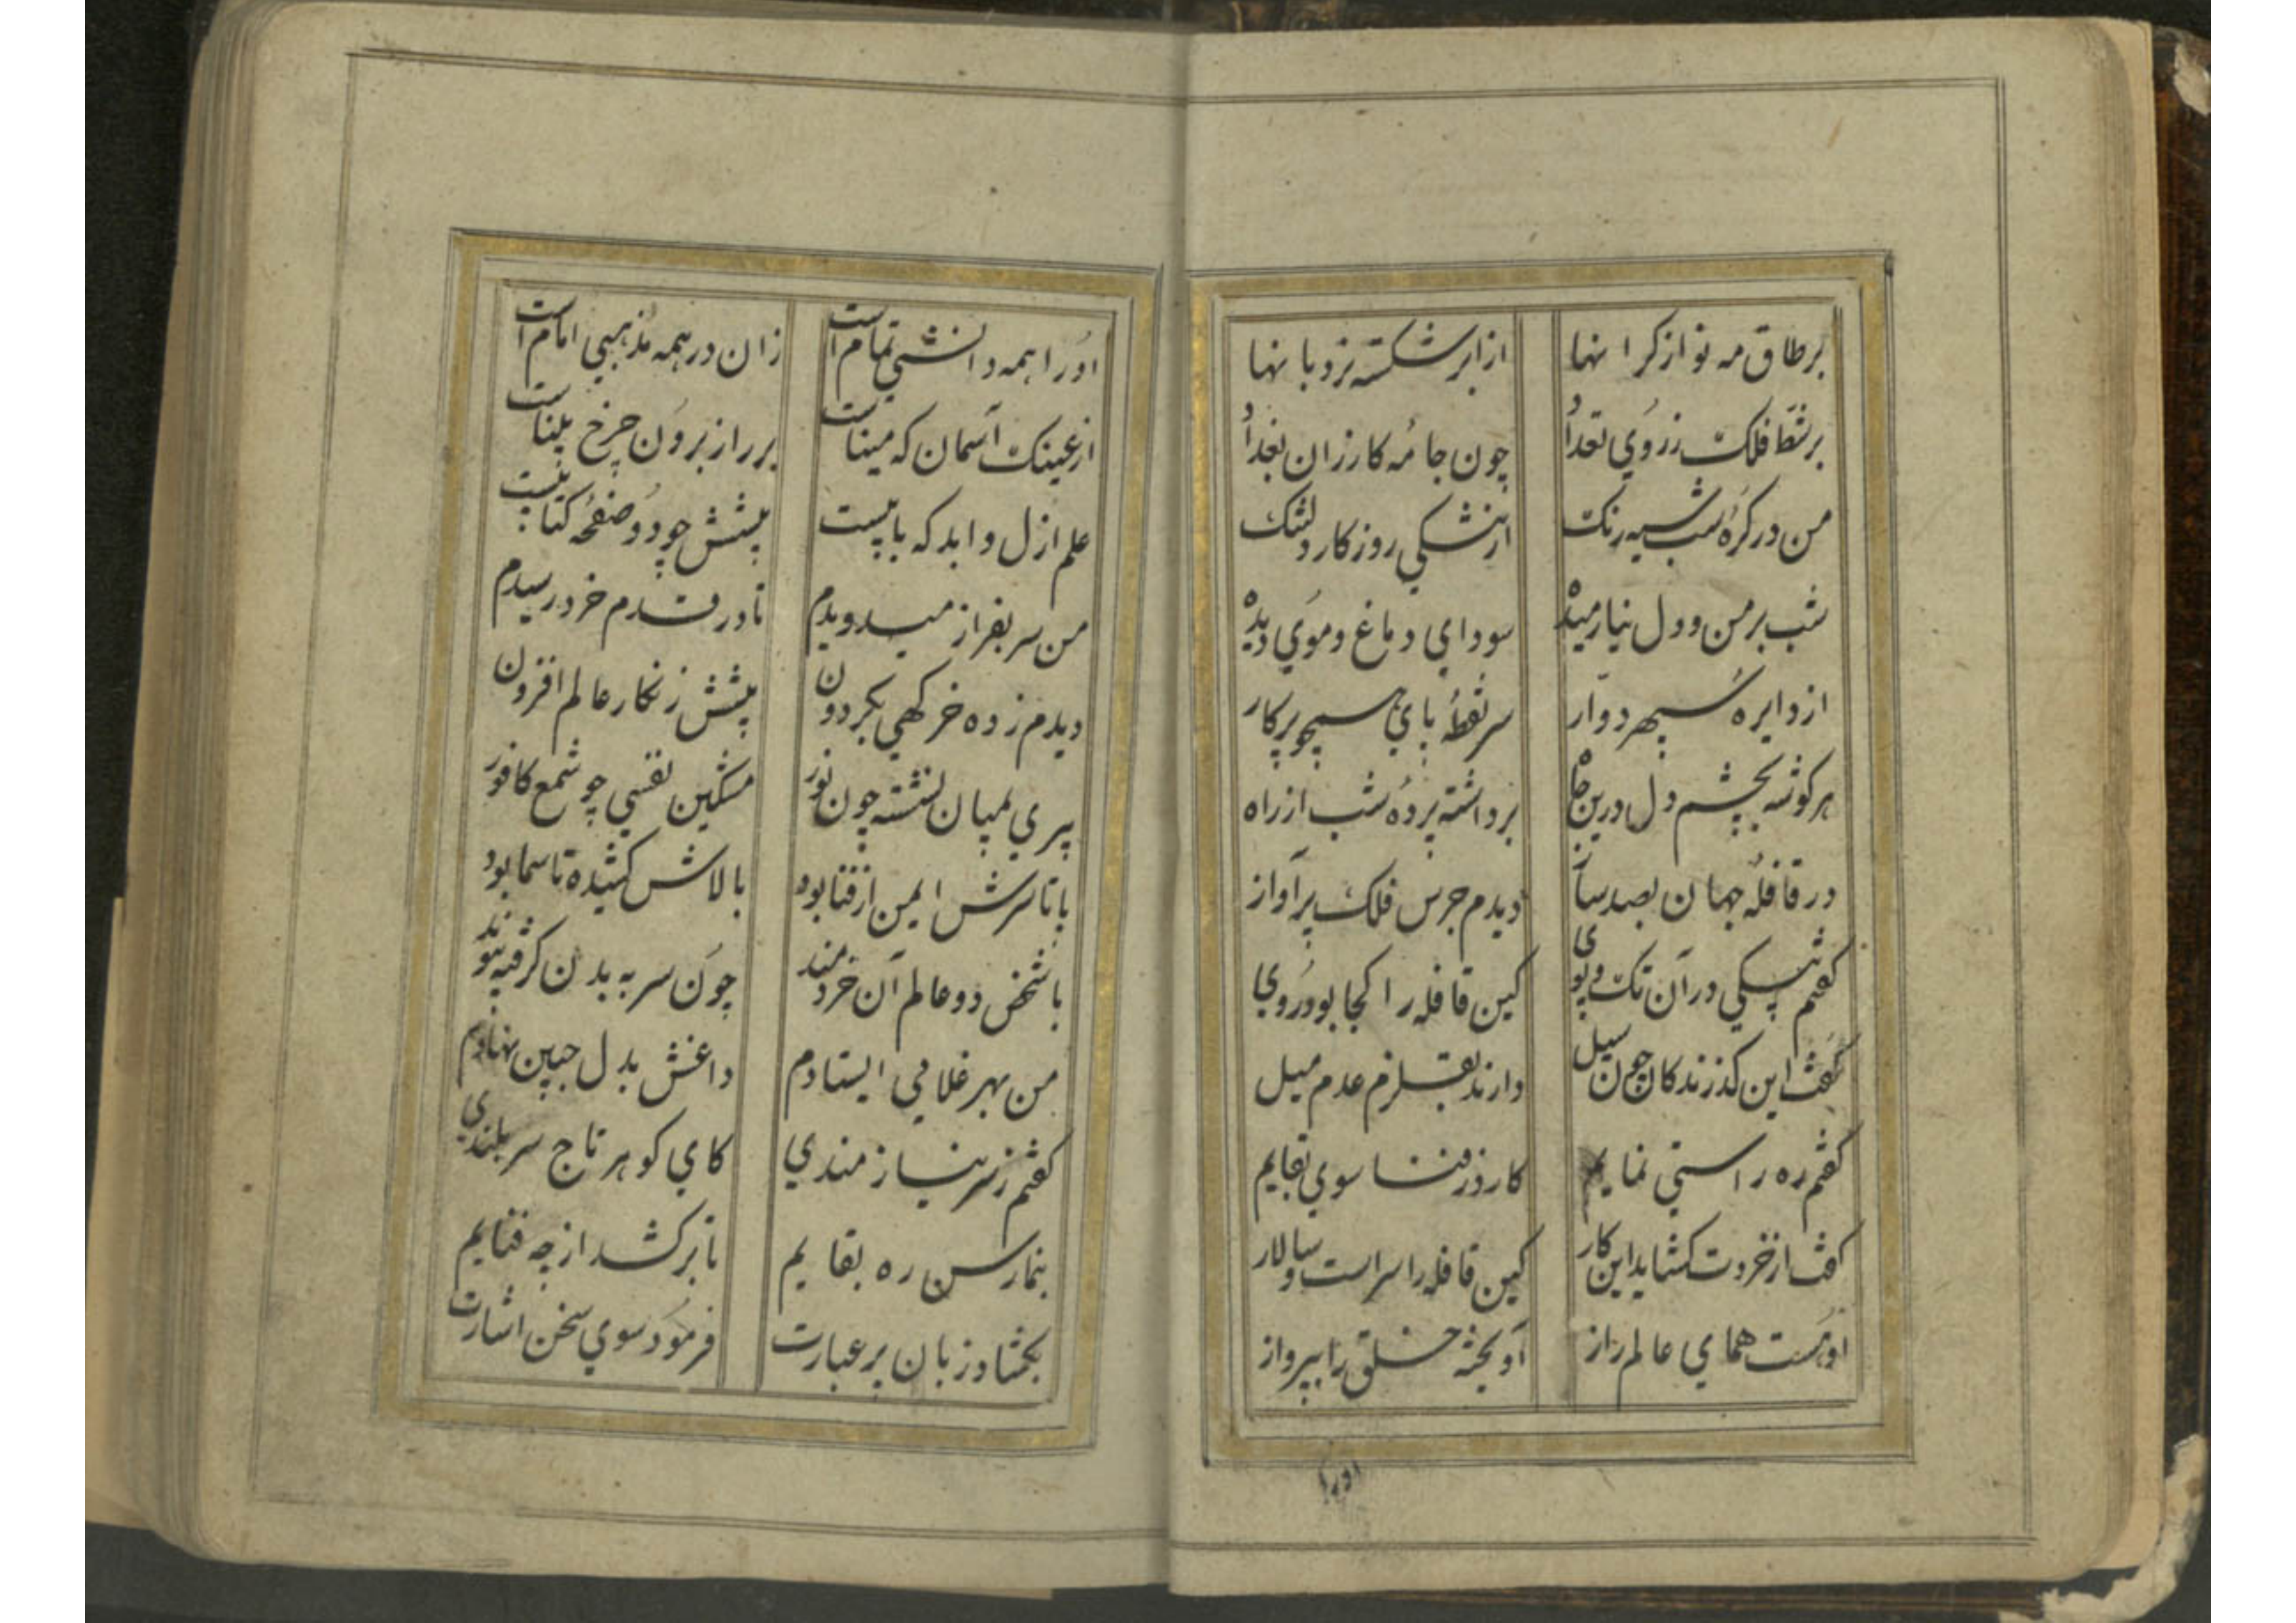 برطاق مه نو از کرانها از ابر شکسته نردبانها
برشط فلک زروی تعداد چون جامه کارزان بغداد
من در کره شب سیه رنک از تنشکی روزکار دلتنک
شب بر من و دل نیارمیده سودای دماغ و موی دیده
از دایره سپهر دوار سر نقطه پای همچو پرکار
هر کوشه بچشم دل درین جاه برداشته پرده شب از راه
در قافله جهان بصد ساز دیدم جرس فلک پرآواز
کفتم بیکی در آن تک و پوی کین قافله را کجا بود روی
کفت این کذرندکان چون سیل دارند بقلزم عدم میل
کفتم ره راستی نمایم کارد ز فنا سوی بقایم
کفت از خردت کشاید این کار کین قافله را سراست و سالار
اوست همای عالم راز آویخته خلق را بپرواز
اورا
اورا همه دانشی تمام است زان در همه مذهبی امام است
از عینک آسمان که میناست بر راز برون چرخ بیناست
علم ازل و ابد که بابیست پیشش چو دو صفحه کتابیست
من سر بفراز میدویدم تا در قدم خرد رسیدم
دیدم زده خرکهی بکردون پیشش ز نکار عالم افزون
پیری بمیان نشسته چون نور مشکین نفسی چو شمع کافور
پا تا سرش ایمن از فنا بود بالاش کشیده تا سما بود
با شخص دو عالم آن خردمند چون سر به بدن کرفته پیوند
من بهر غلامی ایستادم داغش بدل جبین نهادم
کفتم ز سر نیازمندی کای کوهر تاج سربلندی
بنمارسن ره بقایم تا برکشد از چه فنایم
بکشاد زبان بر عبارت فرمود سوی سخن اشارت